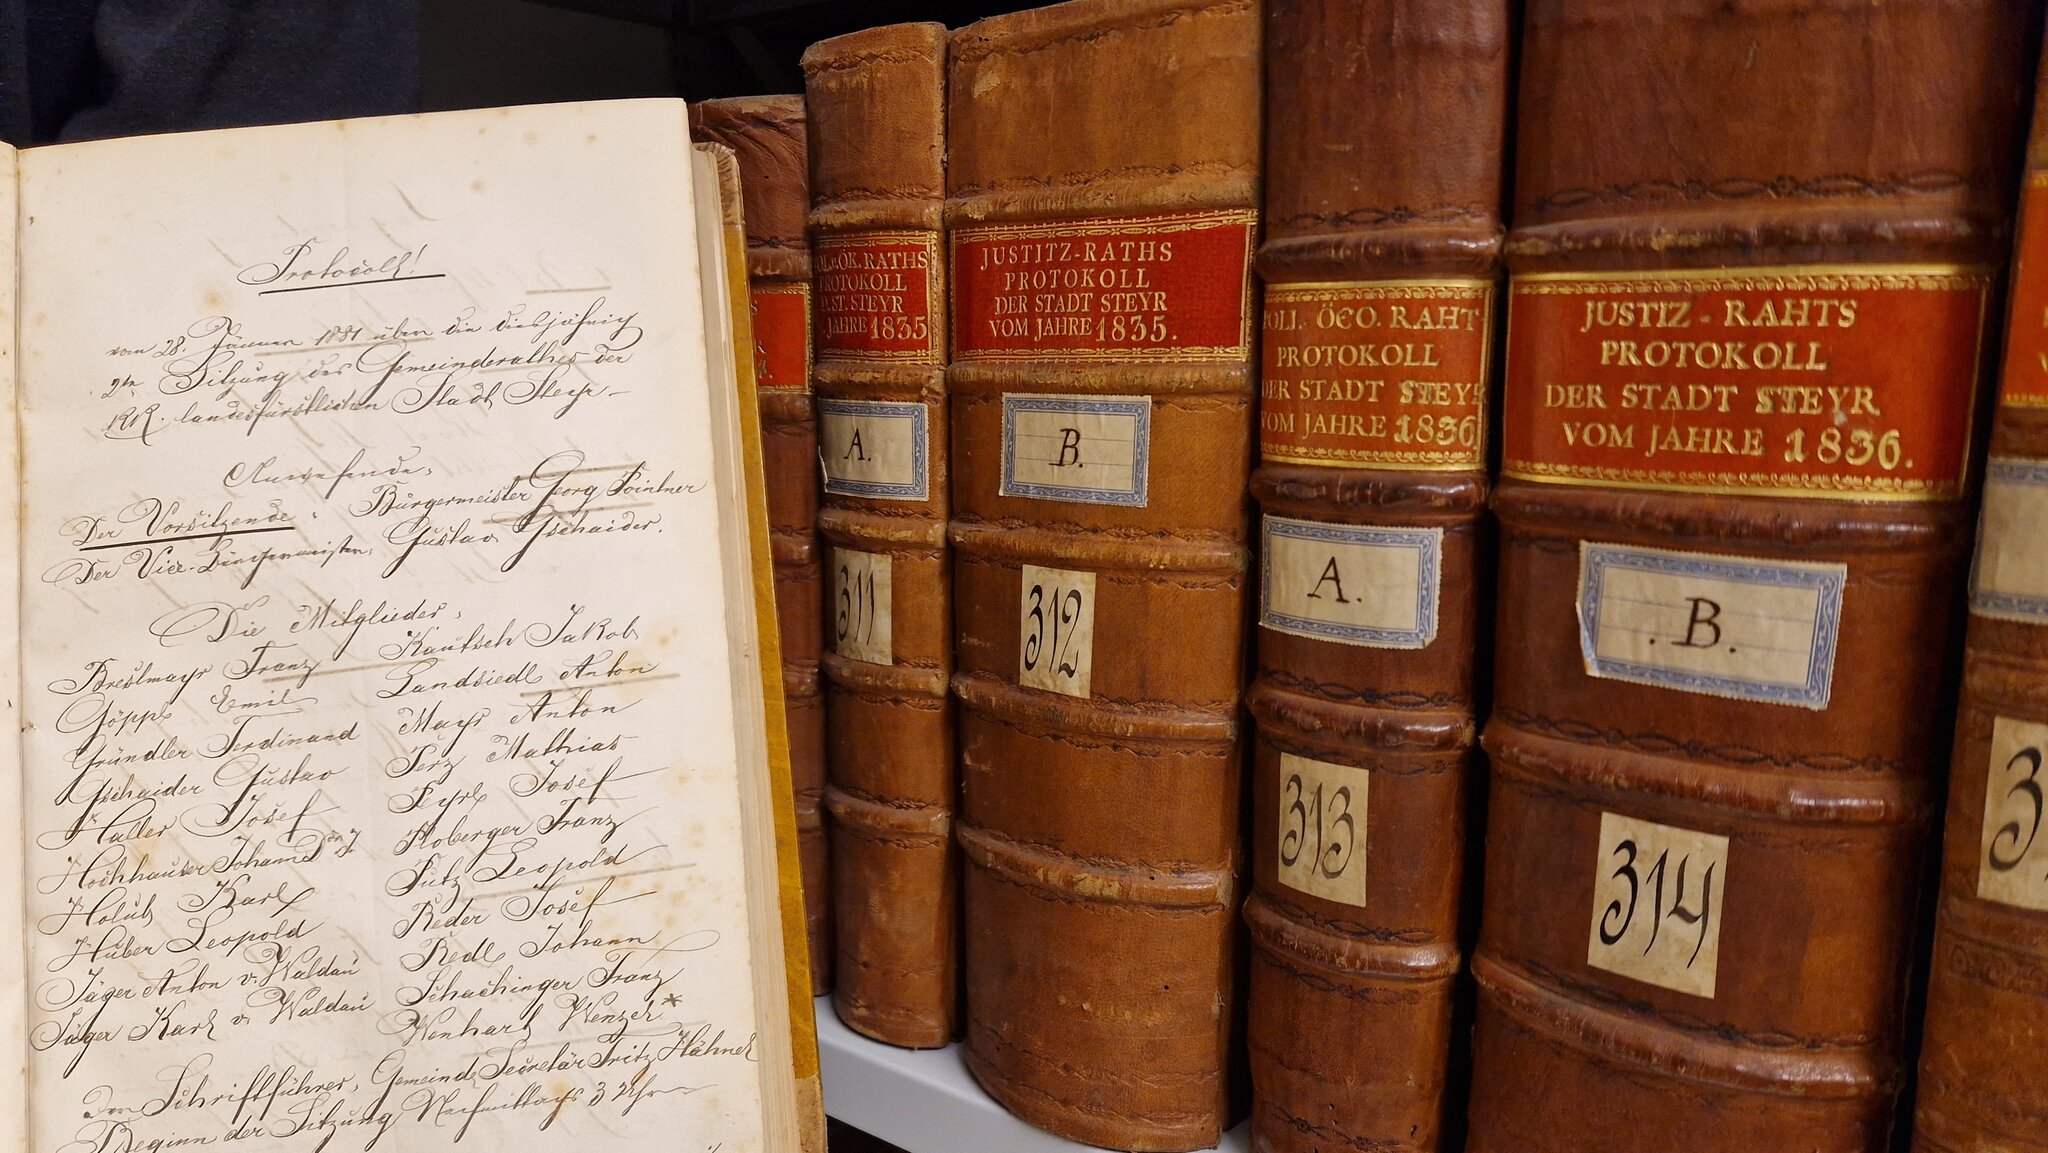 Protocoll!
vom 28. Jänner 1881 über die diesjährig
2te Sitzung des Gemeinderathes der
KK. landesfürstlichen Stadt Steyr –
Anwesende:
Der Vorsitzende: Bürgermeister Georg Pointner
Der Vice-Bürgermeister: Gustav Gschaider.
Die Mitglieder:
Breslmayr Franz
Göppl Emil
Gründler Ferdinand
Gschaider Gustav
Haller Josef
Hochhauser Johann
Holub Karl
Huber Leopold
Jäger Anton v. Waldau
Jäger Karl v. Waldau
Kautsch Jakob
Landsiedl Anton
Mayr Anton
Perz Mathias
Peyrl Josef
Ploberger Franz
Putz Leopold
Reder Josef
Redl Johann
Schachinger Franz
Wenhart Wenzel *
Der Schriftführer: Gemeinde Secretär Fritz Hähnel
Beginn der Sitzung Nachmittags 3 Uhr
ÖK. RATHS
PROTOKOLL
D. ST. STEYR
JAHRE 1835
A.
311
JUSTITZ-RATHS
PROTOKOLL
DER STADT STEYR
VOM JAHRE 1835.
B.
312
POLI.- ÖCO. RAHT
PROTOKOLL
DER STADT STEYR
VOM JAHRE 1836
A.
313
JUSTIZ - RAHTS
PROTOKOLL
DER STADT STEYR
VOM JAHRE 1836.
. B.
314
3